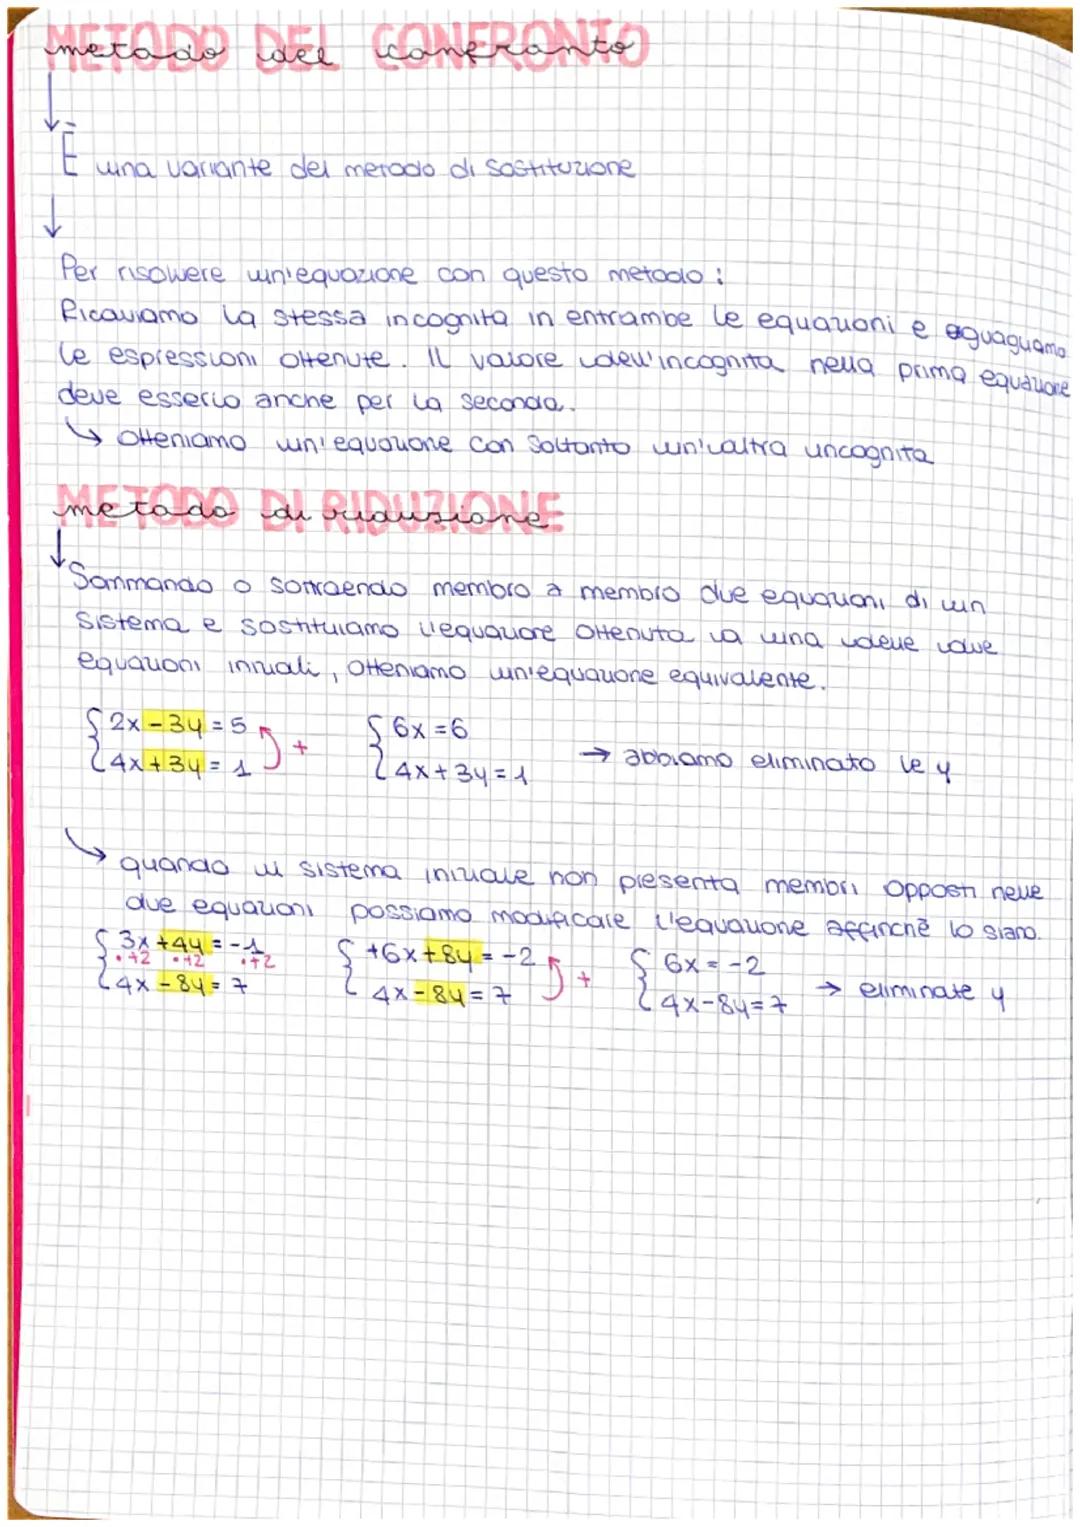 METODO DEL CONFRONTO
metodo del confronto
È una variante del metodo di sostituzione
Per risolvere un'equazione con questo metodo :
Ricaviamo la stessa incognita in entrambe le equazioni e eguagliamo
le espressioni ottenute. Il valore dell'incognita nella prima equazione
deve esserlo anche per la seconda.
↳ Otteniamo un'equazione con soltanto un'altra incognita
METODO DI RIDUZIONE
metodo di riduzione
Sommando o sottraendo membro a membro due equazioni di un
sistema e sostituiamo l'equazione ottenuta a una delle due
equazioni iniziali, otteniamo un'equazione equivalente.
{2x-3y=5 {6x=6
+ → abbiamo eliminato le y
{4x+3y=1 {4x+3y=1
↳ quando il sistema iniziale non presenta membri opposti nelle
due equazioni possiamo modificare l'equazione affinchè lo siano.
{3x+4y=-1 {+6x+8y=-2 {6x=-2
·+2 ·+2 ·+2 + → eliminate y
{4x-8y=7 {4x-8y=7 {4x-8y=7